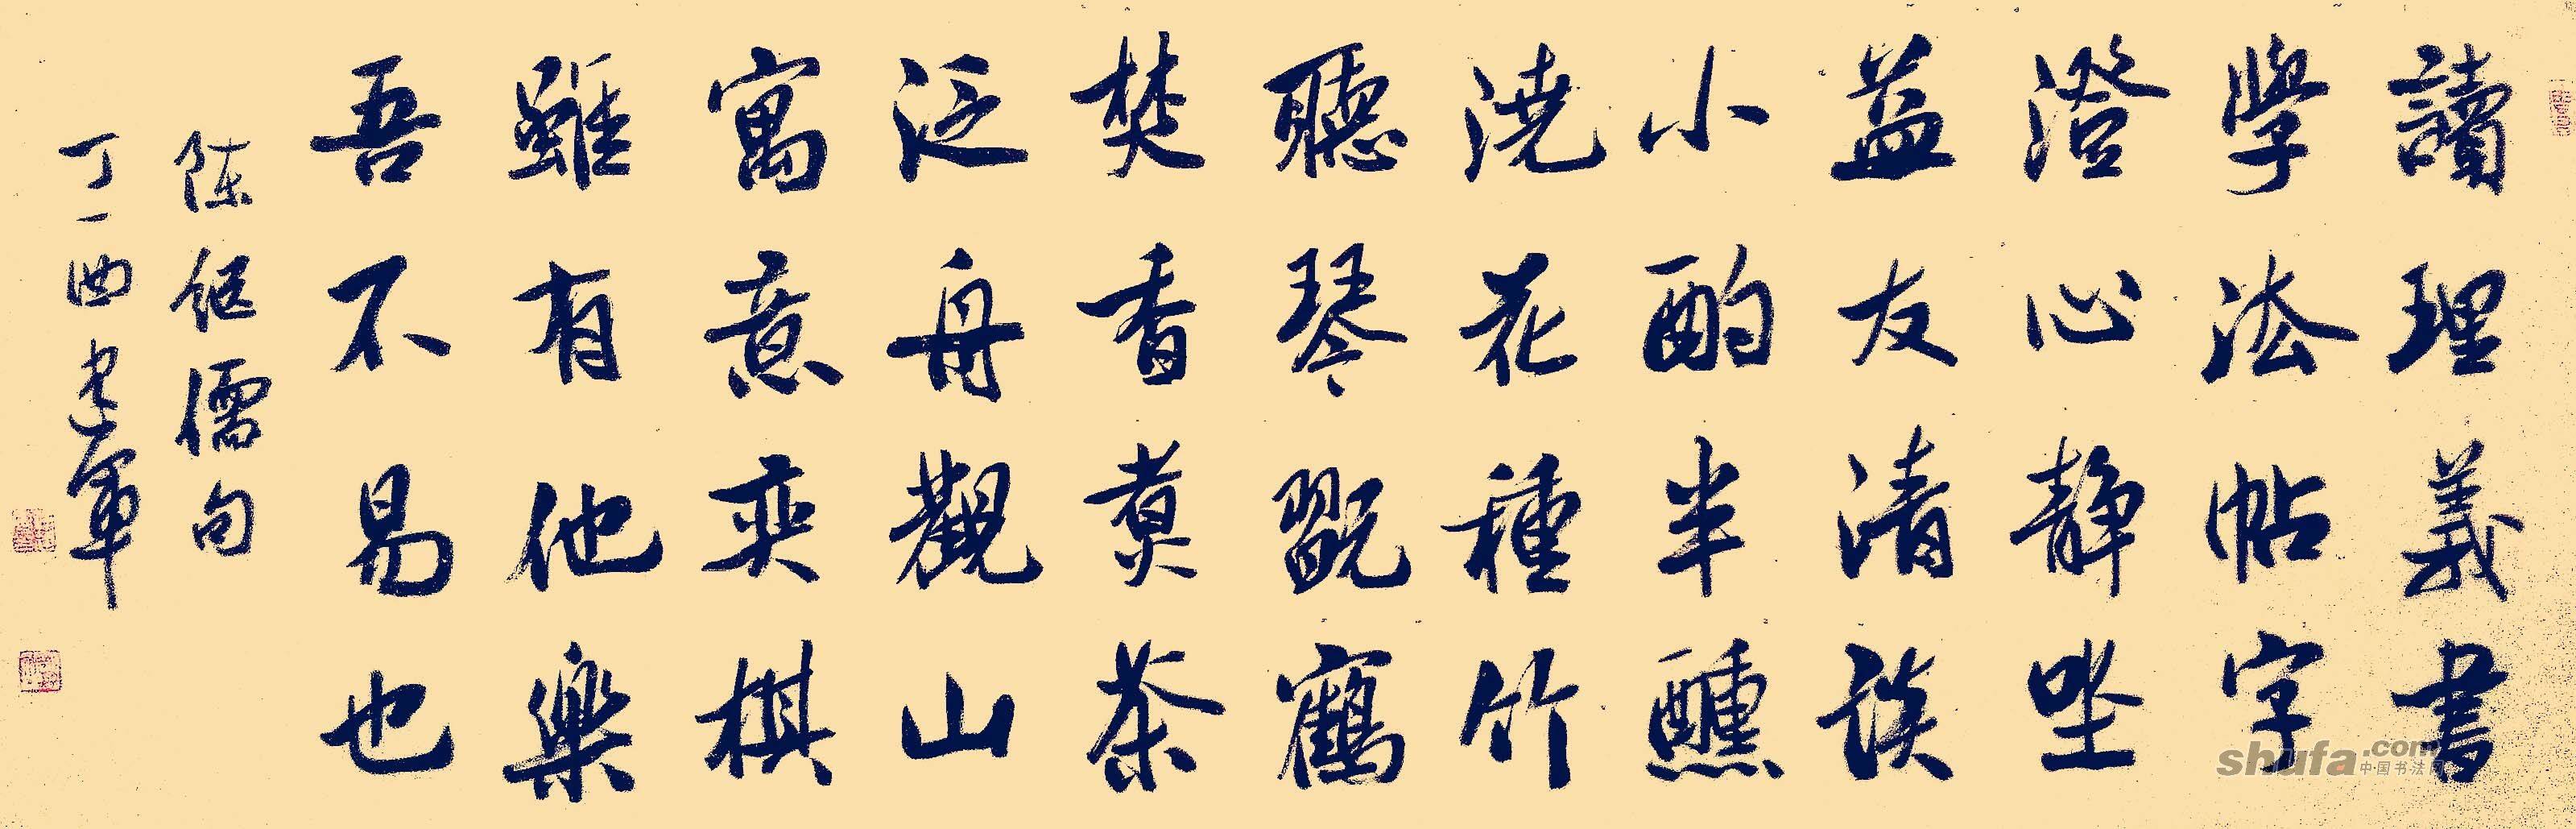 讀理義書
學法帖字
澄心靜坐
益友清談
小酌半醺
澆花種竹
聽琴翫鶴
焚香煮茶
泛舟觀山
寓意奕棋
雖有他樂
吾不易也
陈继儒句
丁酉建軍
shufa.com
中国书法网